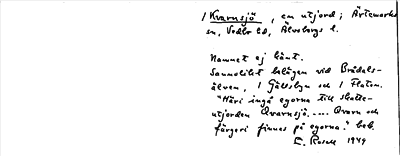 1 Kvarnsjö, em utjord; Ärtemarks
sn, Vedbo hd, Älvsborgs l.
Namnet ej känt.
Sannolikt belägen vid Brådals-
älven, 1 Gällsbyn och 1 Flaten.
"Häri ingå egorna till skatte-
utjorden Qvarnsjö.... Qvarn och
färgeri finnes på egorna." beb.
E. Rosell 1949